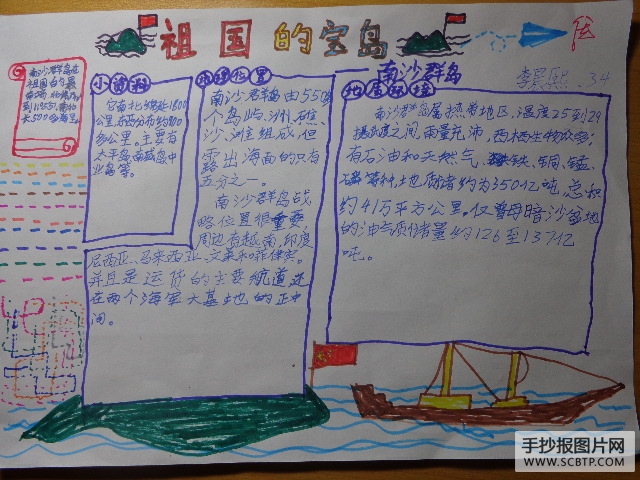 祖国的宝岛
南沙群岛
李昊熙 34
南沙群岛在
祖国的
小资料
它南北绵延1800
公里，东西分布约900
多公里。主要有
太平岛、南威岛、中
业岛等。
地理位置
南沙群岛由550多
个岛屿、沙洲、礁、
沙、滩组成，但
露出海面的只有
五分之一。
南沙群岛战
略位置很重要，
周边有越南、印度
尼西亚、马来西亚、文莱和菲律宾。
并且是运货的主要航道还
在两个海军大基地的正中
间。
地质环境
南沙群岛属热带地区，温度25到29
摄氏度之间，雨量充沛，西栖生物众多；
有石油和天然气、铁、铜、锰、
磷等种，土地质储者约为350亿吨，总积
约41万平方公里，仅曾母暗沙盆地
的油气质储量约126至137亿
吨。
手抄报图片网
WWW.SCBTP.COM